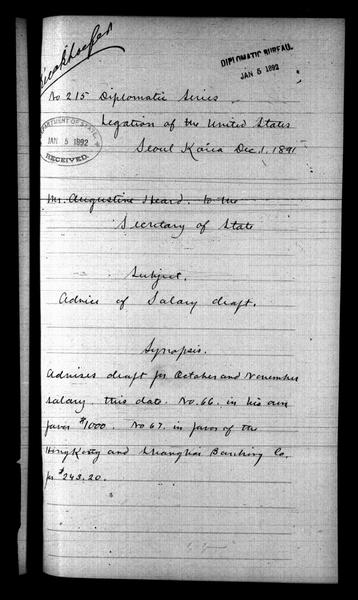 DIPLOMATIC BUREAU.
JAN 5 1892
No 215 Diplomatic Series
DEPARTMENT OF STATE,
JAN 5 1892
RECEIVED.
Legation of the United States
Seoul Korea Dec. 1. 1891
Mr. Augustine Heard. to the
Secretary of State
Subject.
Advice of Salary draft.
Synopsis.
Advises draft for October and November
salary. this date. No. 66. in his own
favor $1000. No 67. in favor of the
HongKong and Shanghai Banking Co.
for $243.20.